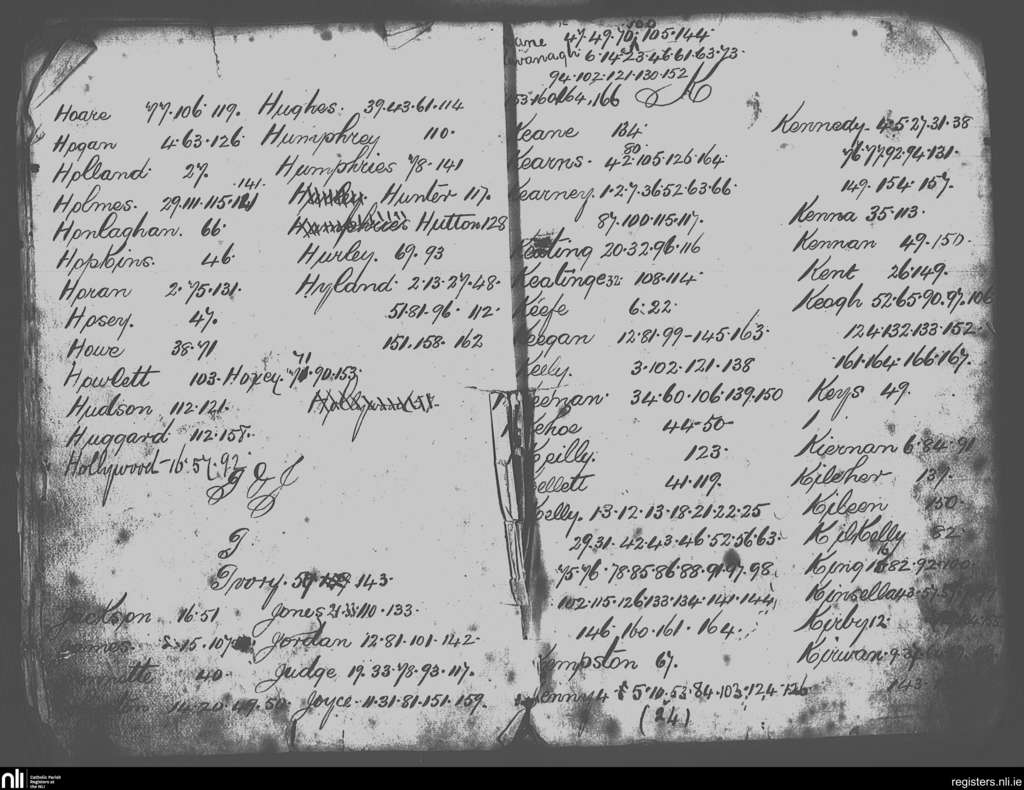 Hoare 77.106.119.
Hogan 4.63.126
Holland. 27.
Holmes. 29.111.115.141
Honlaghan. 66.
Hopkins. 46.
Horan 2.75.131.
Hosey. 47.
Howe 38.71
Howlett 103.
Hudson 112.121.
Huggard 112.158.
Hollywood 16.57.92
Hughes. 39.43.61.114
Humphrey 110.
Humphries 78.141
Hunter 117.
Hutton 128
Hurley. 69.93
Hyland. 2.13.27.48.
51.81.96. 112.
151.158. 162
Hoxey. 71.90.153.
I & J
I
Ivory. 143.
Jackson 16.51
James. 15.107
40.
14.20.49.50.
Jones 110.133.
Jordan 12.81.101.142.
Judge 19.33.78.93.117.
Joyce. 11.31.81.151.159.
47.49.70.105.144.
6.14.23.46.61.63.73.
94.102.121.130.152
153.160.164.166
K
Keane 134.
Kearns. 42.80.105.126.164
Kearney. 1.2.7.36.52.63.66.
87.100.115.117.
Keating 20.32.96.116
Keatinge 32. 108.114.
Keefe 6.22.
Keegan 12.81.99.145.163.
Keely. 3.102.121.138
Keenan. 34.60.106.139.150
Kehoe 44.50
Keilly. 123.
Kellett 41.119.
Kelly. 1.3.12.13.18.21.22.25
29.31.42.43.46.52.56.63.
75.76.78.85.86.88.91.97.98.
102.115.126.133.134.141.144
146.160.161. 164.
Kempston 67.
Kenny 4 & 5.10.53.84.103.124.126
(24)
Kennedy. 4.5.27.31.38
76.77.92.94.131.
149.154.157.
Kenna 35.113.
Kennan 49.150.
Kent 26.149.
Keogh 52.65.90.97.106
124.132.133.152.
161.164.166.167.
Keys 49.
Kiernan 6.84.91
Kilcher 139.
Kileen 150.
KilKelly 82
King 82.92.100
Kinsella 43.
Kirby 12.
Kirwan
143
nli Catholic Parish
Registers at
the NLI
registers.nli.ie